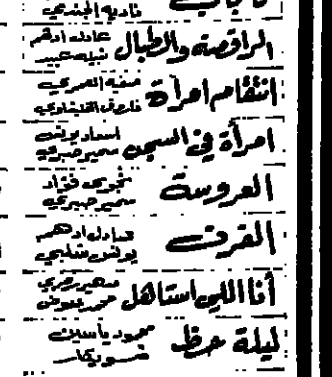 نادية الجندي
الراقصة والطبال
عادل ادهم
نبيلة عبيد
انتقام امرأة
صفية العمري
فاروق الفيشاوي
امرأة في السجن
اسعاد يونس
سمير صبري
العروسة
نجوى فؤاد
سمير صبري
القرش
عادل ادهم
يونس شلبي
أنا اللي استاهل
سهير رمزي
محمد عوض
ليلة حظ
محمود ياسين
شويكار